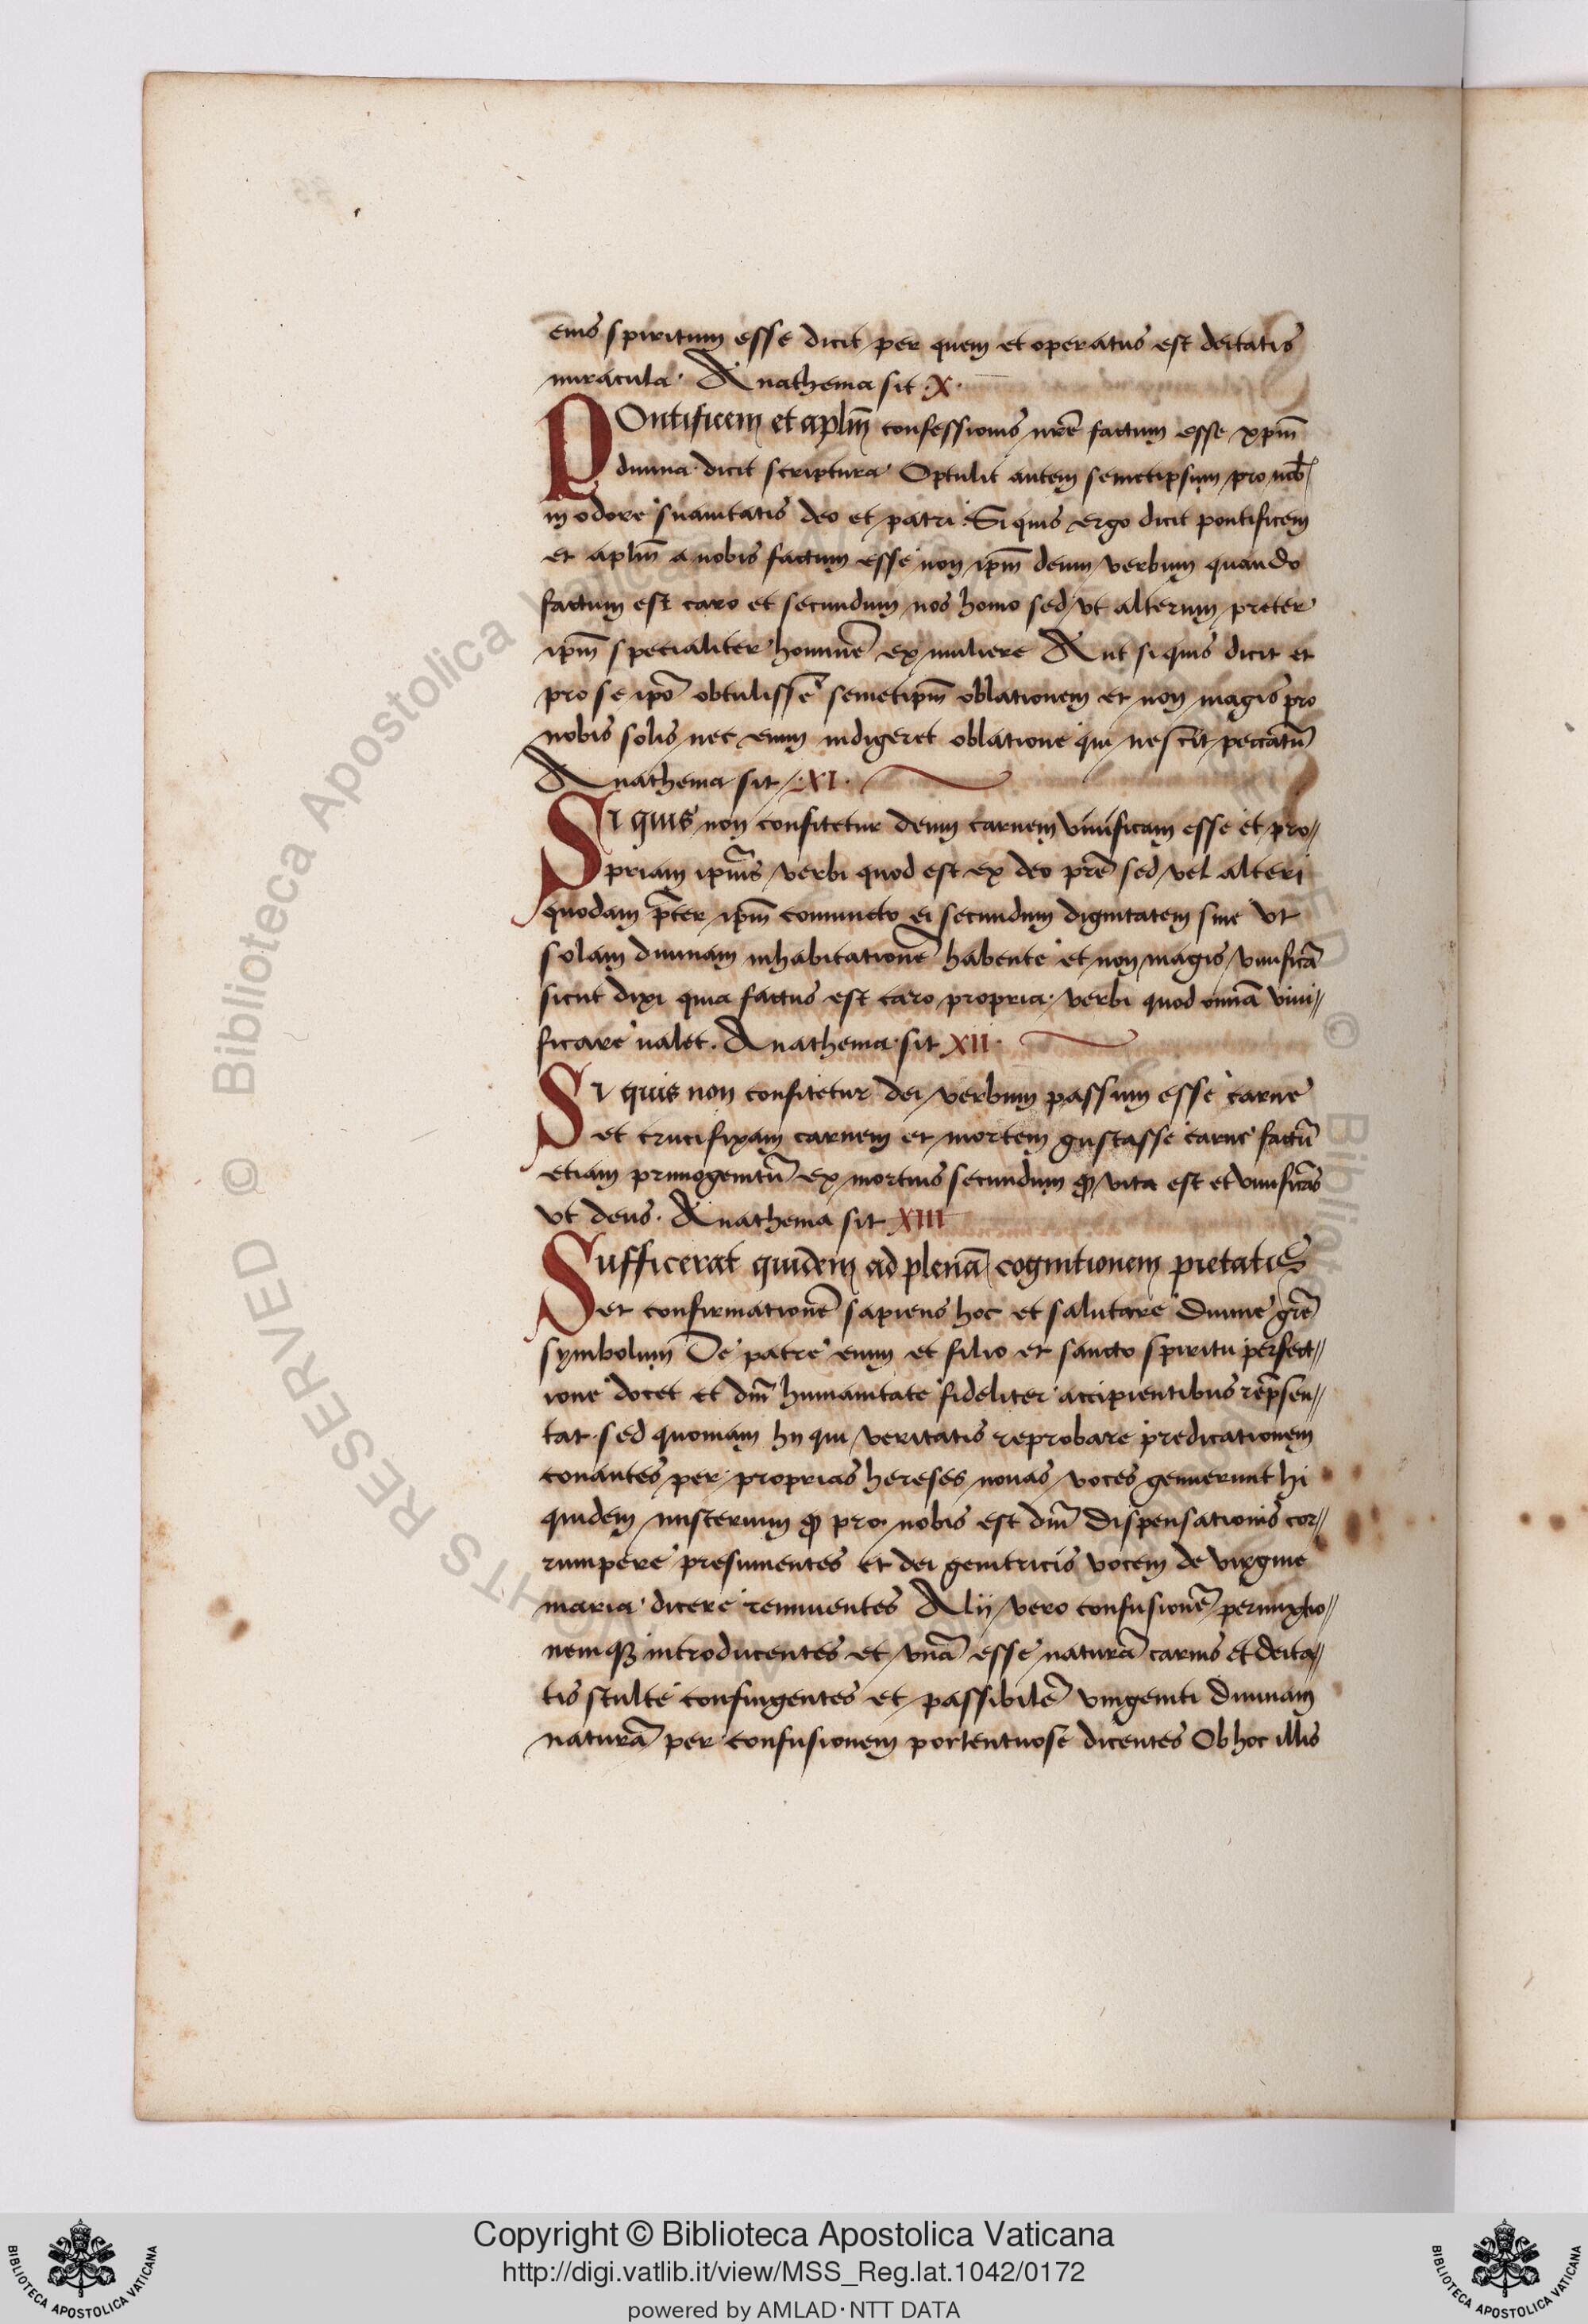 eius spiritum esse dicit per quem et operatus est deitatis
miracula. Anathema sit .X.
POntificem et aplm̄ confessionis nrē factum esse xpm̄
diuina dicit scriptura Optulit autem semetipsum pro nob̄
in odore suauitatis deo et patri. Si quis ergo dicit pontificem
et aplm̄ a nobis factum esse non ipm̄ deum verbum quando
factum est caro et secundum nos homo sed vt alterum preter
ipm̄ specialiter hominē ex muliere Aut si quis dicit et
pro se ipō obtulissē semetipm̄ oblationem et non magis pro
nobis solis nec enim indigeret oblatione qui nescit peccatū
Anathema sit .XI.
SI quis non confitetur deum carnem viuificam esse et pro//
priam ipīus verbi quod est ex deo prē sed vel alteri
quodam p̄ter ipm̄ coniuncto ei secundum dignitatem siue vt
solam diuinam inhabitationē habente et non magis viuificā
sicut dixi quia factus est caro propria verbi quod omnā viui//
ficare ualet. Anathema sit XII.
SI quis non confitetur dei verbum passum esse carne
et crucifixam carnem et mortem gustasse carne factū
etiam primogenitū ex mortuis secundum ꝙ vita est et viuificās
vt deus. Anathema sit XIII
Sufficerat quidem ad plenā cognitionem pietatis
et confirmationē sapiens hoc et salutare diuine grē
symbolum De patre enim et filio et sancto spiritu perfect//
ione docet et dm̄ humanitate fideliter accipientibus rep̄sen//
tat. sed quoniam hii qui veritatis reprobare predicationem
conantes per proprias hereses nouas voces genuerunt hi
quidem misterium ꝙ pro nobis est dm̄ dispensationis cor//
rumpere presumentes et dei genitricis vocem de virgine
maria dicere rennuentes Alii vero confusionē permixtio//
nemqꝫ introducentes et vnā esse naturā carnis et deita//
tis stulte confingentes et passibilē vnigeniti diuinam
naturā per confusionem portentuose dicentes Ob hoc illis
Copyright © Biblioteca Apostolica Vaticana
http://digi.vatlib.it/view/MSS_Reg.lat.1042/0172
powered by AMLAD·NTT DATA
BIBLIOTECA APOSTOLICA VATICANA
BIBLIOTECA APOSTOLICA VATICANA